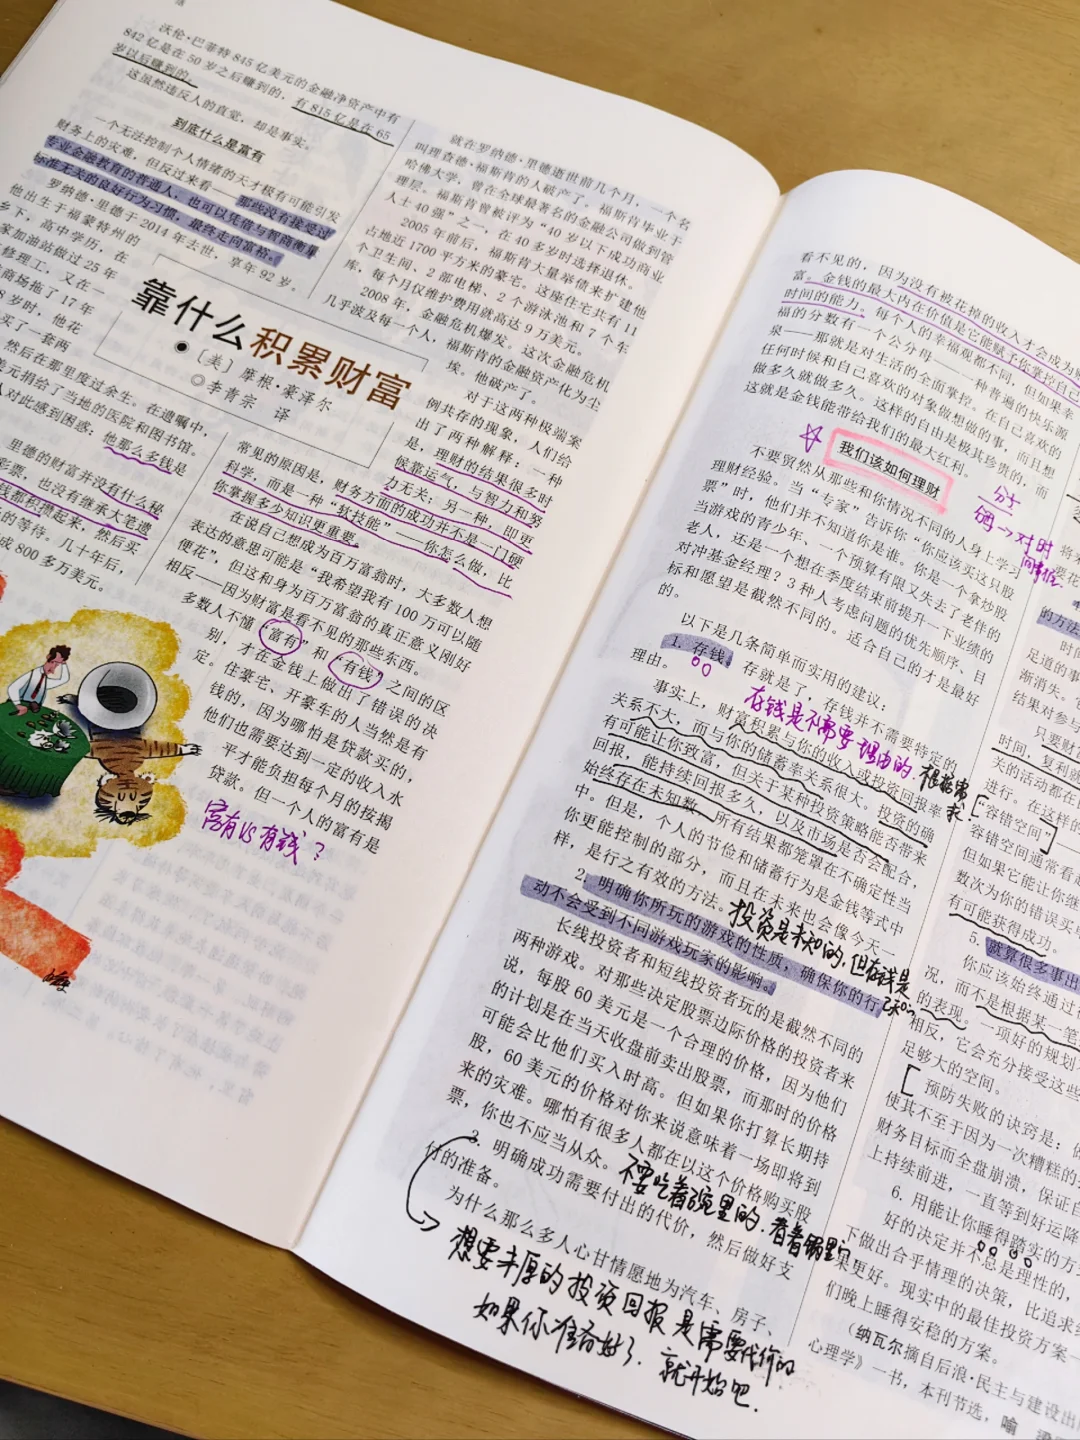 沃伦·巴菲特 845 亿美元的金融净资产中有
842 亿是在 50 岁之后赚到的，有 815 亿是在 65
岁以后赚到的。
这虽然违反人的直觉，却是事实。
到底什么是富有
一个无法控制个人情绪的天才极有可能引发
财务上的灾难，但反过来看——那些没有接受过
专业金融教育的普通人，也可以凭借与智商衡量
标准无关的良好行为习惯，最终走向富裕。
罗纳德·里德于 2014 年去世，享年 92 岁。
他出生于福蒙特州的
乡下，高中学历，在
家加油站做过 25 年
修理工，又在一
商场拖了 17 年
8 岁时，他花
买了一套两
然后在那里度过余生。在遗嘱中，
美元捐给了当地的医院和图书馆。
人对此感到困惑：他那么多钱是
里德的财富并没有什么秘
彩票，也没有继承大笔遗
钱都积攒起来，然后买
的等待。几十年后，
成 800 多万美元。
靠什么积累财富
●［美］摩根·豪泽尔
◎李青宗 译
就在罗纳德·里德逝世前几个月，一个名
叫理查德·福斯肯的人破产了。福斯肯毕业于
哈佛大学，曾在全球最著名的金融公司做到管
理层。福斯肯曾被评为“40 岁以下成功商业
人士 40 强”之一，在 40 多岁时选择退休。
2005 年前后，福斯肯大量举债来扩建他
占地近 1700 平方米的豪宅。这座住宅共有 11
个卫生间、2 部电梯、2 个游泳池和 7 个车
库，每个月仅维护费用就高达 9 万美元。
2008 年，金融危机爆发。这次金融危机
几乎波及每一个人，福斯肯的金融资产化为尘
埃。他破产了。
对于这两种极端案
例共存的现象，人们给
出了两种解释：一种
是，理财的结果很多时
候靠运气，与智力和努
力无关；另一种，即更
常见的原因是，财务方面的成功并不是一门硬
科学，而是一种“软技能”——你怎么做，比
你掌握多少知识更重要。
在说自己想成为百万富翁时，大多数人想
表达的意思可能是“我希望我有 100 万可以随
便花”，但这和身为百万富翁的真正意义刚好
相反——因为财富是看不见的那些东西。
多数人不懂“富有”和“有钱”之间的区
别，才在金钱上做出了错误的决
定。住豪宅、开豪车的人当然是有
钱的，因为哪怕是贷款买的，
他们也需要达到一定的收入水
平才能负担每个月的按揭
贷款。但一个人的富有是
富有VS有钱？
看不见的，因为没有被花掉的收入才会成为财
富。金钱的最大内在价值是它能赋予你掌控自己
时间的能力。每个人的幸福观都不同，但如果幸
福的分数有一个公分母——一种普遍的快乐源
泉——那就是对生活的全面掌控。在自己喜欢的
任何时候和自己喜欢的对象做想做的事，而且想
做多久就做多久。这样的自由是极其珍贵的，而
这就是金钱能带给我们的最大红利。
我们该如何理财
不要贸然从那些和你情况不同的人身上学习
理财经验。当“专家”告诉你“你应该买这只股
票”时，他们并不知道你是谁。你是一个拿炒股
当游戏的青少年、一个预算有限又失去了老伴的
老人，还是一个想在季度结束前提升一下业绩的
对冲基金经理？3 种人考虑问题的优先顺序、目
标和愿望是截然不同的。适合自己的才是最好
的。
以下是几条简单而实用的建议：
1. 存钱。存就是了，存钱并不需要特定的
理由。
存钱是不需要理由的.
事实上，财富积累与你的收入或投资回报率
关系不大，而与你的储蓄率关系很大。投资的确
有可能让你致富，但关于某种投资策略能否带来
回报，能持续回报多久，以及市场是否会配合，
始终存在未知数。所有结果都笼罩在不确定性当
中。但是，个人的节俭和储蓄行为是金钱等式中
你更能控制的部分，而且在未来也会像今天一
样，是行之有效的方法。
投资是未知的，但存钱是
已知的
2. 明确你所玩的游戏的性质，确保你的行
动不会受到不同游戏玩家的影响。
长线投资者和短线投资者玩的是截然不同的
两种游戏。对那些决定股票边际价格的投资者来
说，每股 60 美元是一个合理的价格，因为他们
的计划是在当天收盘前卖出股票，而那时的价格
可能会比他们买入时高。但如果你打算长期持
股，60 美元的价格对你来说意味着一场即将到
来的灾难。哪怕有很多人都在以这个价格购买股
票，你也不应当从众。
不要吃着碗里的，看着锅里
3. 明确成功需要付出的代价，然后做好支
付的准备。
为什么那么多人心甘情愿地为汽车、房子、
想要丰厚的投资回报是需要代价的
如果你准备好了.就开始吧.
将来
要花
的方法
时间
足道的事
渐消失。
结果对参与
只要财
时间，复利就
关的活动都在
进行。在这样的
“容错空间”
容错空间通常看起
但如果它能让你继
数次为你的错误买单
有可能获得成功。
5. 就算很多事出
你应该始终通过
况，而不是根据某一笔
的表现。一项好的规划
相反，它会充分接受这些
足够大的空间。
预防失败的诀窍是：
使其不至于因为一次糟糕的
财务目标而全盘崩溃，保证自
上持续前进，一直等到好运降
6. 用能让你睡得踏实的方
好的决定并不总是理性的，
下做出合乎情理的决策，比追求
果更好。现实中的最佳投资方案
们晚上睡得安稳的方案。
（纳瓦尔摘自后浪·民主与建设出
心理学》一书，本刊节选，喻